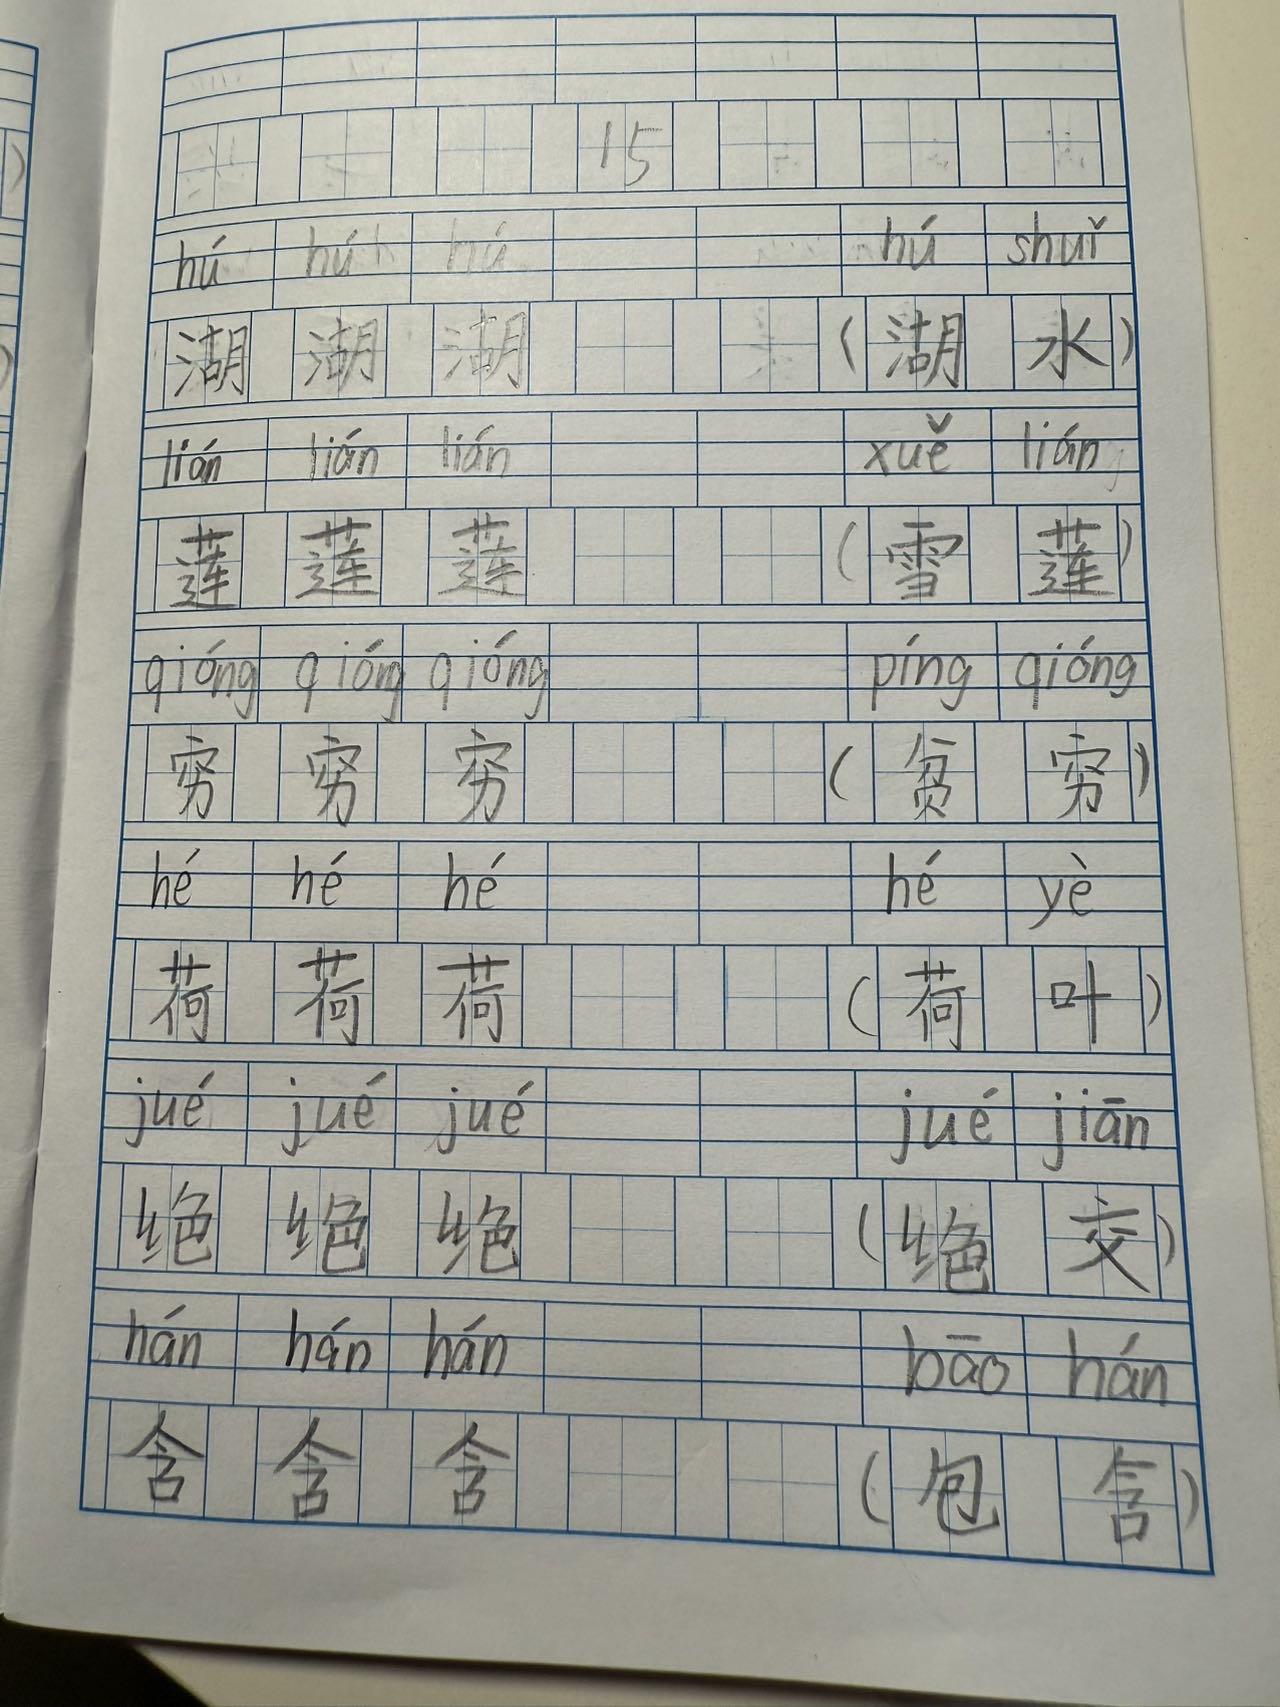 15
hú hú hú hú shuǐ
湖 湖 湖 (湖 水)
lián lián lián xuě lián
莲 莲 莲 (雪 莲)
qióng qióng qióng píng qióng
穷 穷 穷 (贫 穷)
hé hé hé hé yè
荷 荷 荷 (荷 叶)
jué jué jué jué jiān
绝 绝 绝 (绝 交)
hán hán hán bāo hán
含 含 含 (包 含)